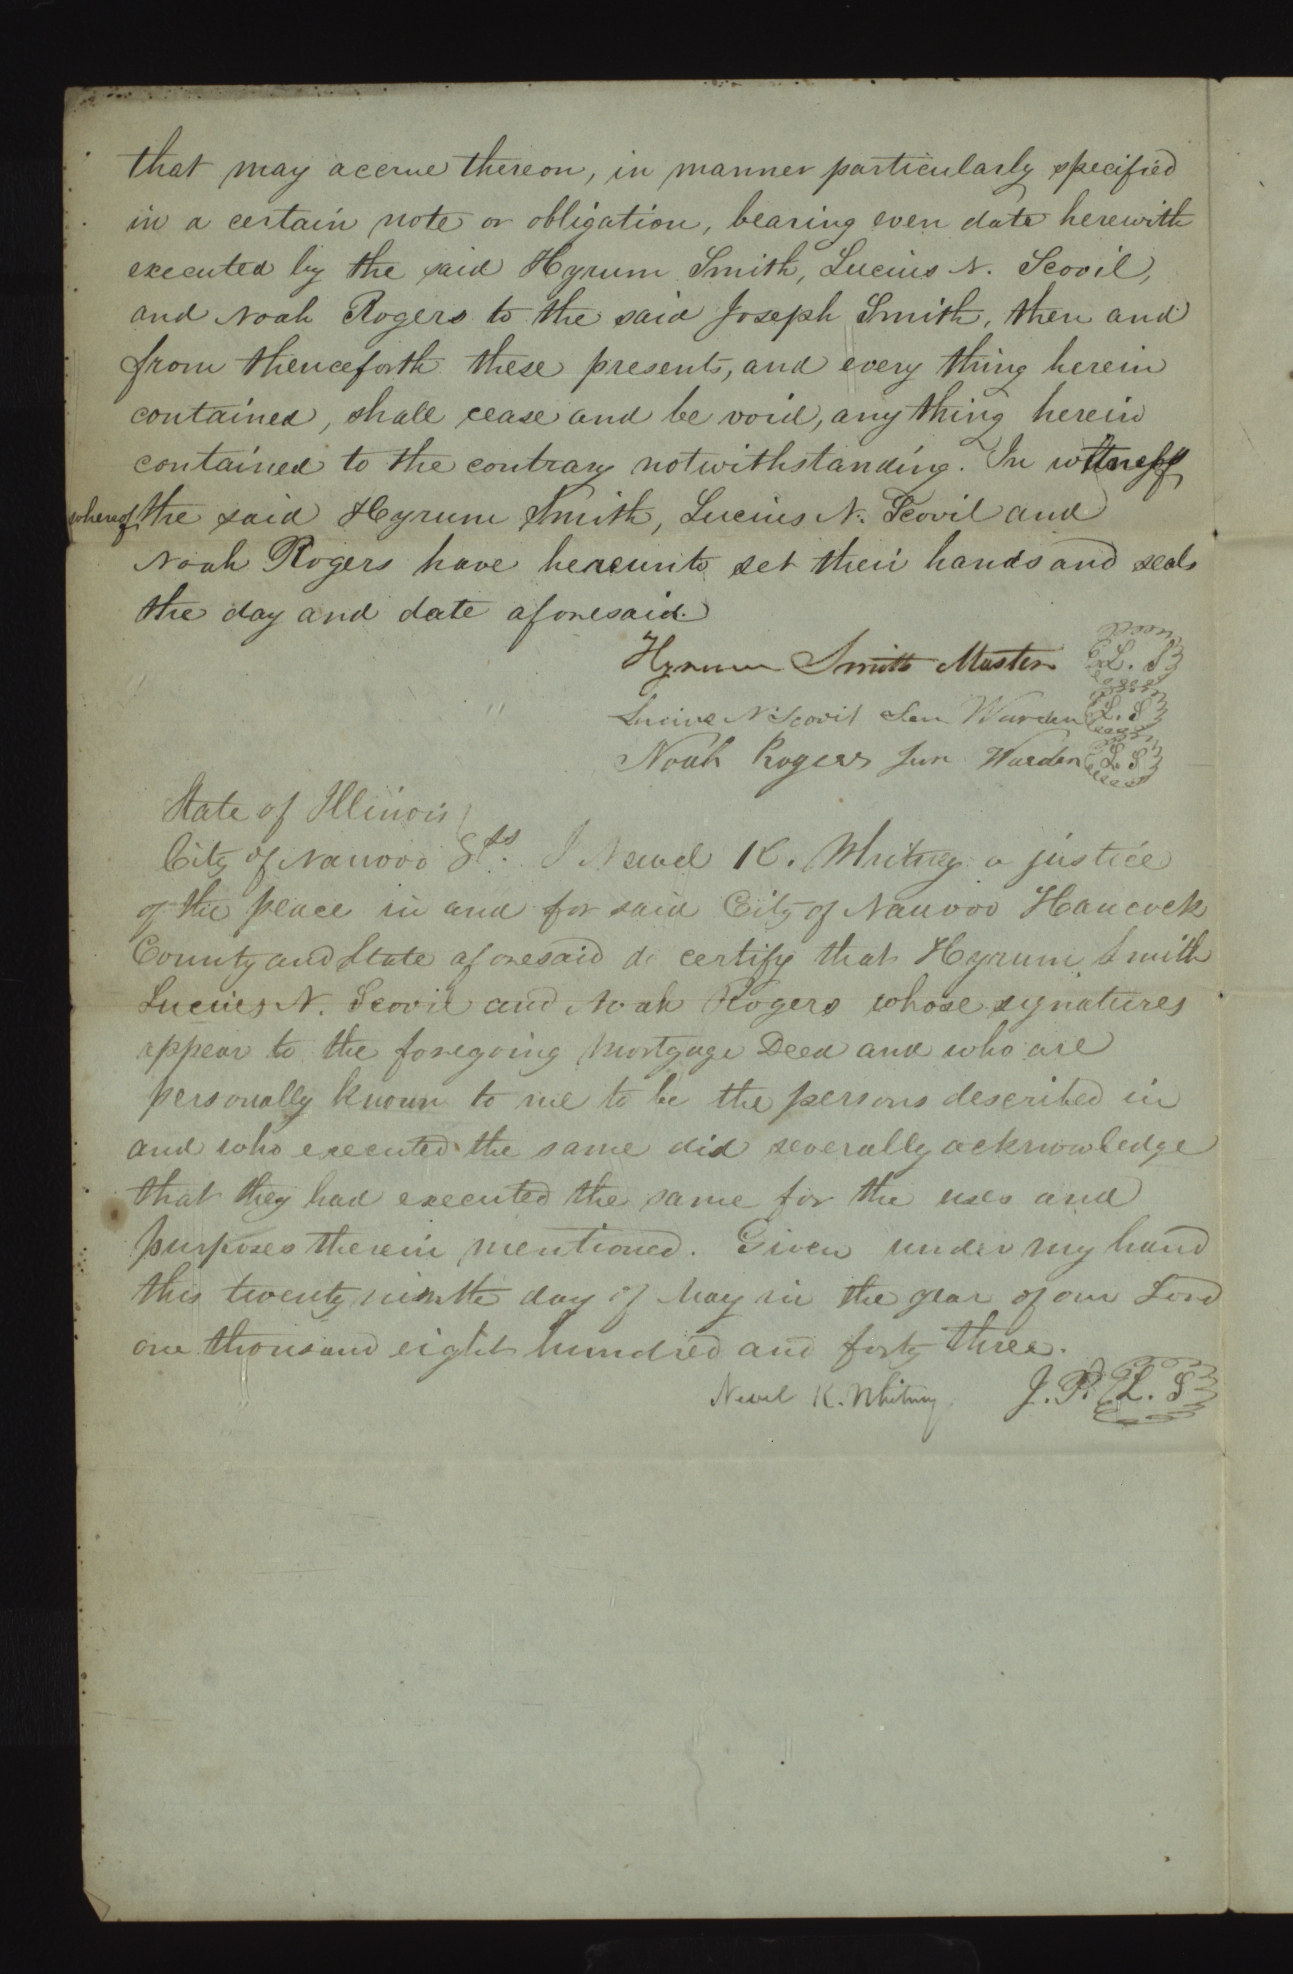 that may accrue thereon, in manner particularly specified
in a certain note or obligation, bearing even date herewith
executed by the said Hyrum Smith, Lucius N. Scovil,
and Noah Rogers to the said Joseph Smith, then and
from thenceforth these presents, and every thing herein
contained, shall cease and be void, any thing herein
contained to the contrary notwithstanding. In witness
whereof, the said Hyrum Smith, Lucius N. Scovil and
Noah Rogers have hereunto set their hands and seals
the day and date aforesaid.
Hyrum Smith Master L. S
Lucius N Scovil Sen Warden L. S
Noah Rogers Jun Warden L. S
State of Illinois
City of Nauvoo ss. I Newel K. Whitney a justice
of the peace in and for said City of Nauvoo Hancock
County and State aforesaid do certify that Hyrum Smith
Lucius N. Scovil and Noah Rogers whose signatures
appear to the foregoing Mortgage Deed and who are
personally known to me to be the persons described in
and who executed the same did severally acknowledge
that they had executed the same for the uses and
purposes therein mentioned. Given under my hand
this twenty ninth day of May in the year of our Lord
one thousand eight hundred and forty three.
Newel K. Whitney J. P. L. S